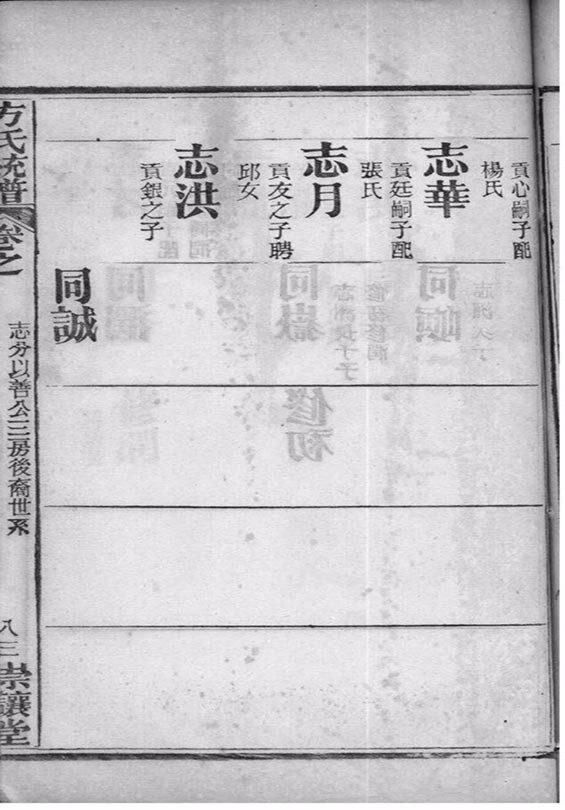 貢心嗣子配
楊氏
志華
貢廷嗣子配
張氏
志月
貢友之子聘
邱女
志洪
貢銀之子
同誠
方氏統譜
卷之
志分以善公三房後裔世系
八三
崇讓堂